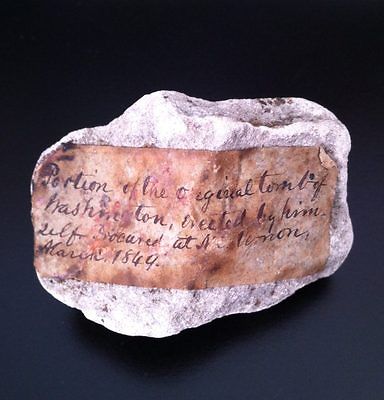 Portion of the original tomb of
Washington, erected by him-
self. Procured at Mt. Vernon,
March, 1849.